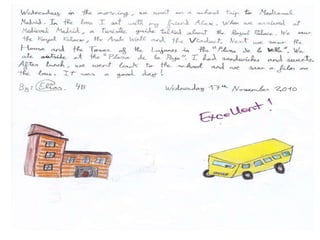 Wednesday in the morning, we went on a school trip to Medieval
Madrid. In the bus I sat with my friend Alex. When we arrived at
Medieval Madrid, a Turistic guide talked about the Royal Palace. We saw
the Royal Palace, the Arab Wall and the Viaduct. Next we saw the
House and the Tower of the Lujanes in the "Plaza de la Villa". We
ate outside at the "Plaza de la Paja". I had sandwiches and sweets.
After lunch, we went back to the school and we saw a film on
the bus. It was a good day!
By: Elías. 4B
Wednesday 17th November 2010
Excellent!